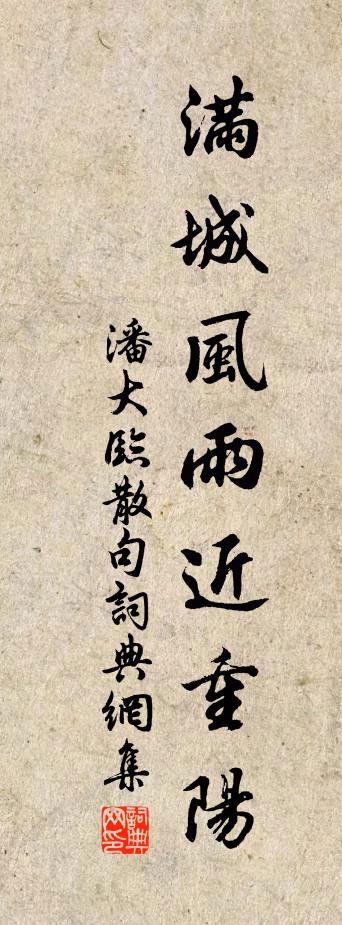 滿城風雨近重陽
潘大臨散句詞典網集
詞典網印